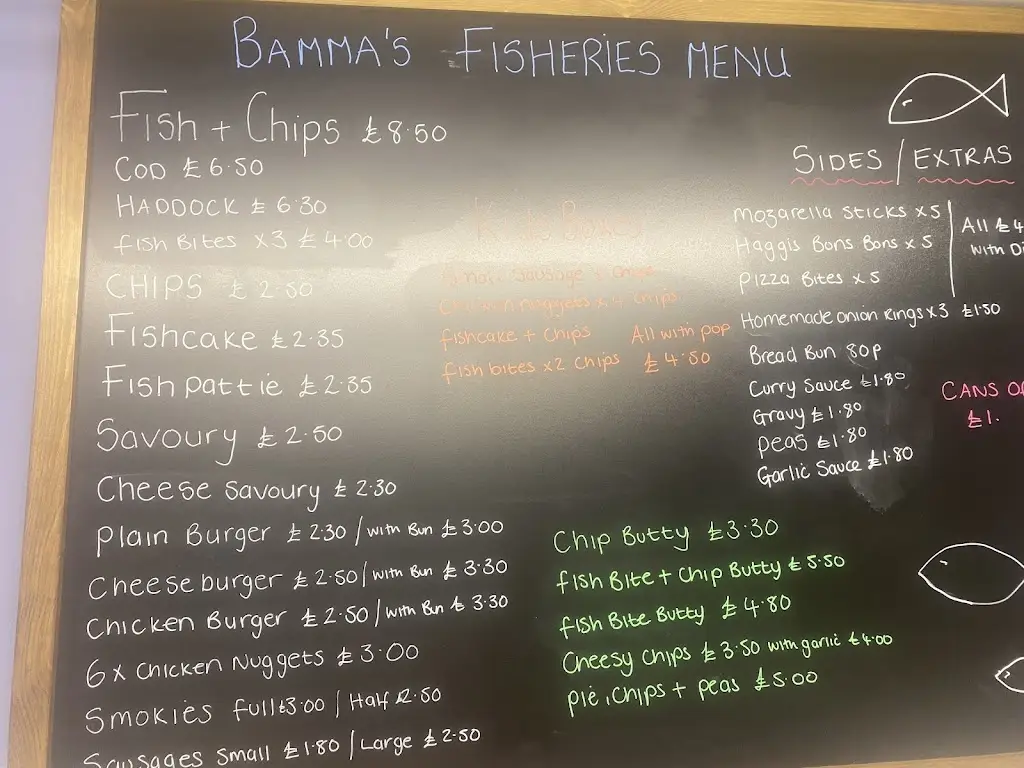 BAMMA'S FISHERIES MENU
Fish + Chips £8.50
COD £6.50
HADDOCK £6.30
fish Bites x3 £4.00
CHIPS £2.50
Fishcake £2.35
Fish pattie £2.35
Savoury £2.50
Cheese Savoury £2.30
Plain Burger £2.30 / with Bun £3.00
Cheeseburger £2.50 / with Bun £3.30
Chicken Burger £2.50 / with Bun £3.30
6x Chicken Nuggets £3.00
Smokies full £3.00 / Half £2.50
Sausages Small £1.80 / Large £2.50
Sausage + Chips
Chicken nuggets x4 Chips
fishcake + Chips All with pop
Fish bites x2 Chips £4.50
Chip Butty £3.30
fish Bite + Chip Butty £5.50
fish Bite Butty £4.80
Cheesy Chips £3.50 with garlic £4.00
Pie, Chips + peas £5.00
SIDES / EXTRAS
Mozarella Sticks x5
Haggis Bons Bons x5
Pizza Bites x5
All £4
with
Homemade onion Rings x3 £1.50
Bread Bun 80p
Curry Sauce £1.80
Gravy £1.80
Peas £1.80
Garlic Sauce £1.80
CANS
£1.